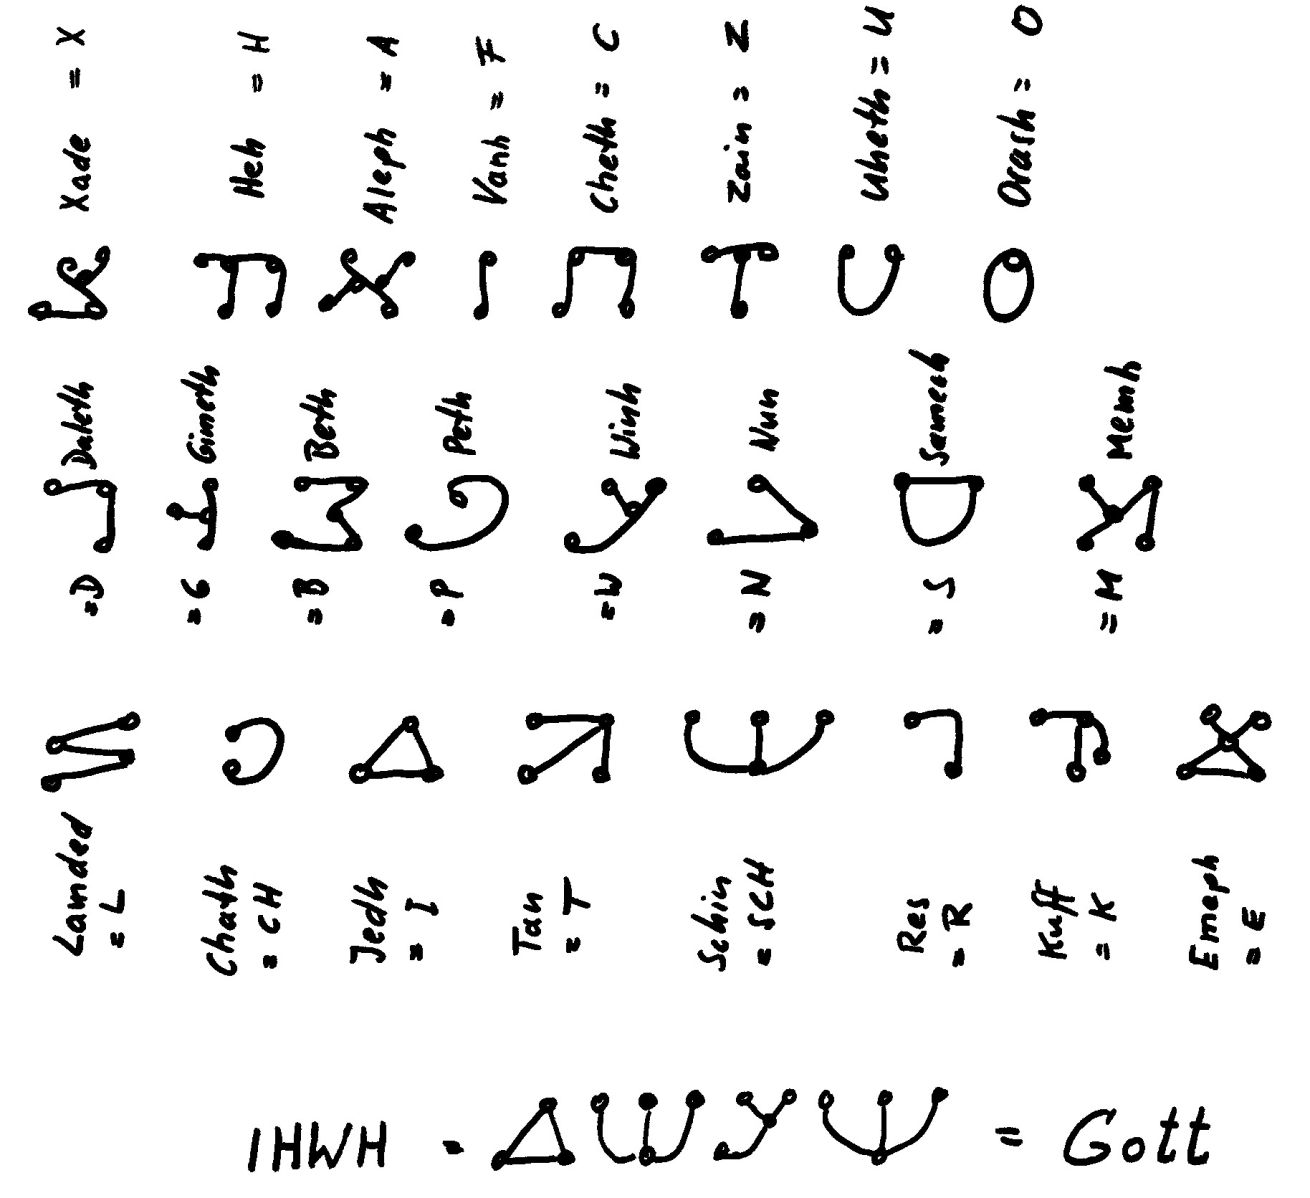 Xade = X
Heh = H
Aleph = A
Vanh = F
Cheth = C
Zain = Z
Uheth = U
Orash = O
Daleth = D
Gimeth = G
Beth = B
Peth = P
Winh = W
Nun = N
Samech = S
Memh = M
Lamded = L
Chath = CH
Jedh = I
Tan = T
Schin = SCH
Res = R
Kuff = K
Emeph = E
IHWH = = Gott